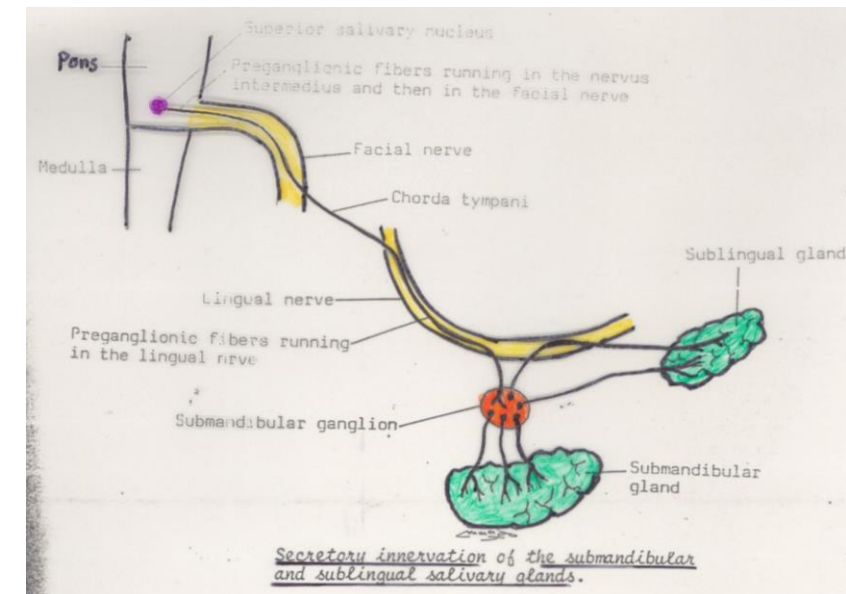 Superior salivary nucleus
Pons
Preganglionic fibers running in the nervus
intermedius and then in the facial nerve
Facial nerve
Medulla
Chorda tympani
Sublingual gland
Lingual nerve
Preganglionic fibers running
in the lingual nrve
Submandibular ganglion
Submandibular
gland
Secretory innervation of the submandibular
and sublingual salivary glands.